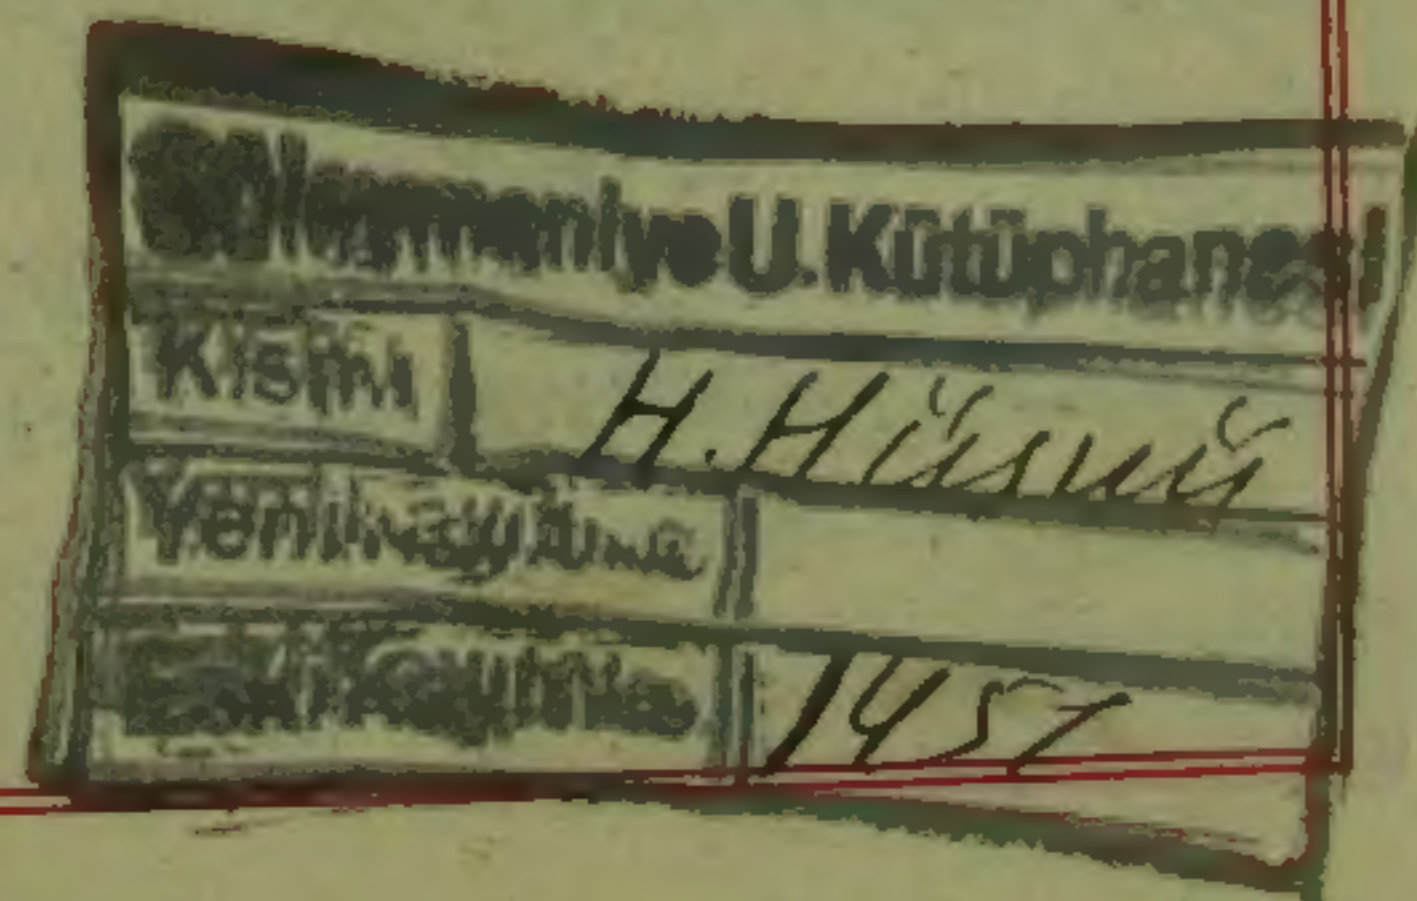 Süleymaniye U. Kütüphanesi
Kısmı H. Hüsnü
Yeni Kayıt No.
Eski Kayıt No 1457